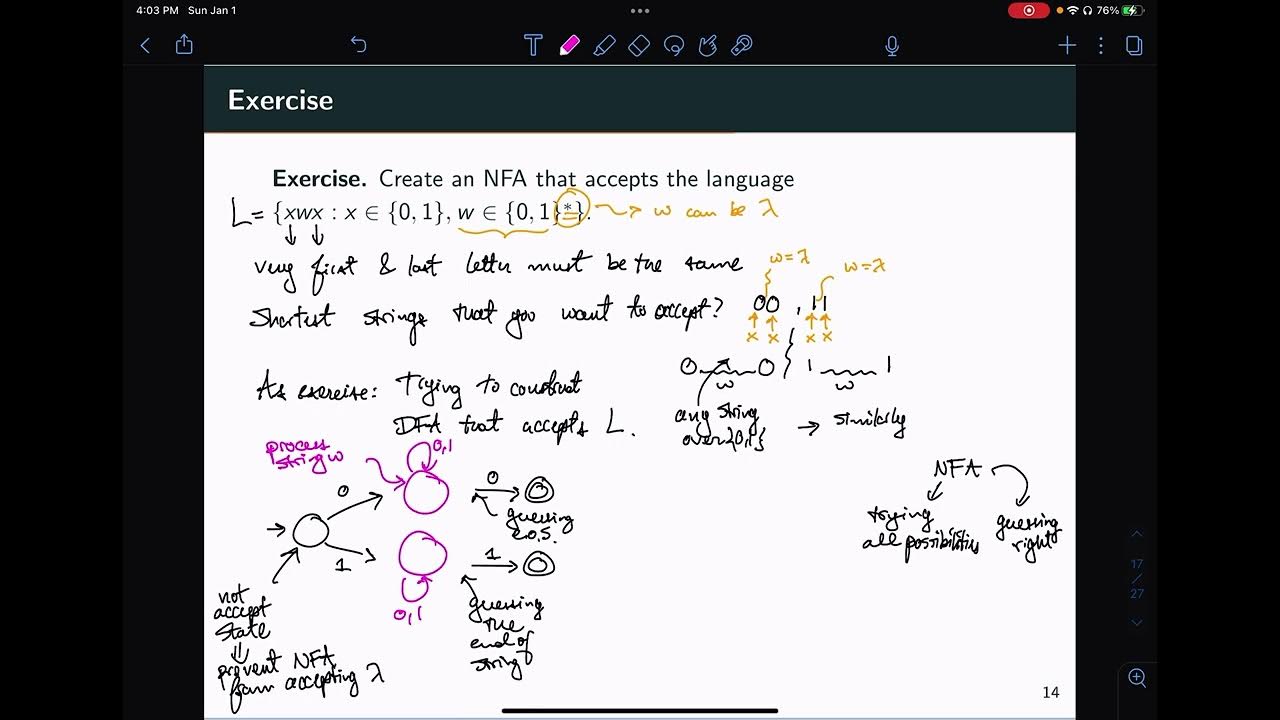 4:03 PM Sun Jan 1
76%
Exercise
Exercise. Create an NFA that accepts the language
L= {xwx : x ∈ {0, 1}, w ∈ {0, 1}*}.
w can be λ
very first & last letter must be the same
w=λ
w=λ
Shortest strings that you want to accept? 00 , 11
x x x x
0 w 0
1 w 1
any string
over {0,1}
→ similarly
As exercise: Trying to construct
DFA that accepts L.
process
string w
0,1
0
0
guessing
e.o.s.
1
1
0,1
guessing
the
end of
string
not
accept
state
⇓
prevent NFA
from accepting λ
NFA
trying
all possibilities
guessing
right
17
/
27
14